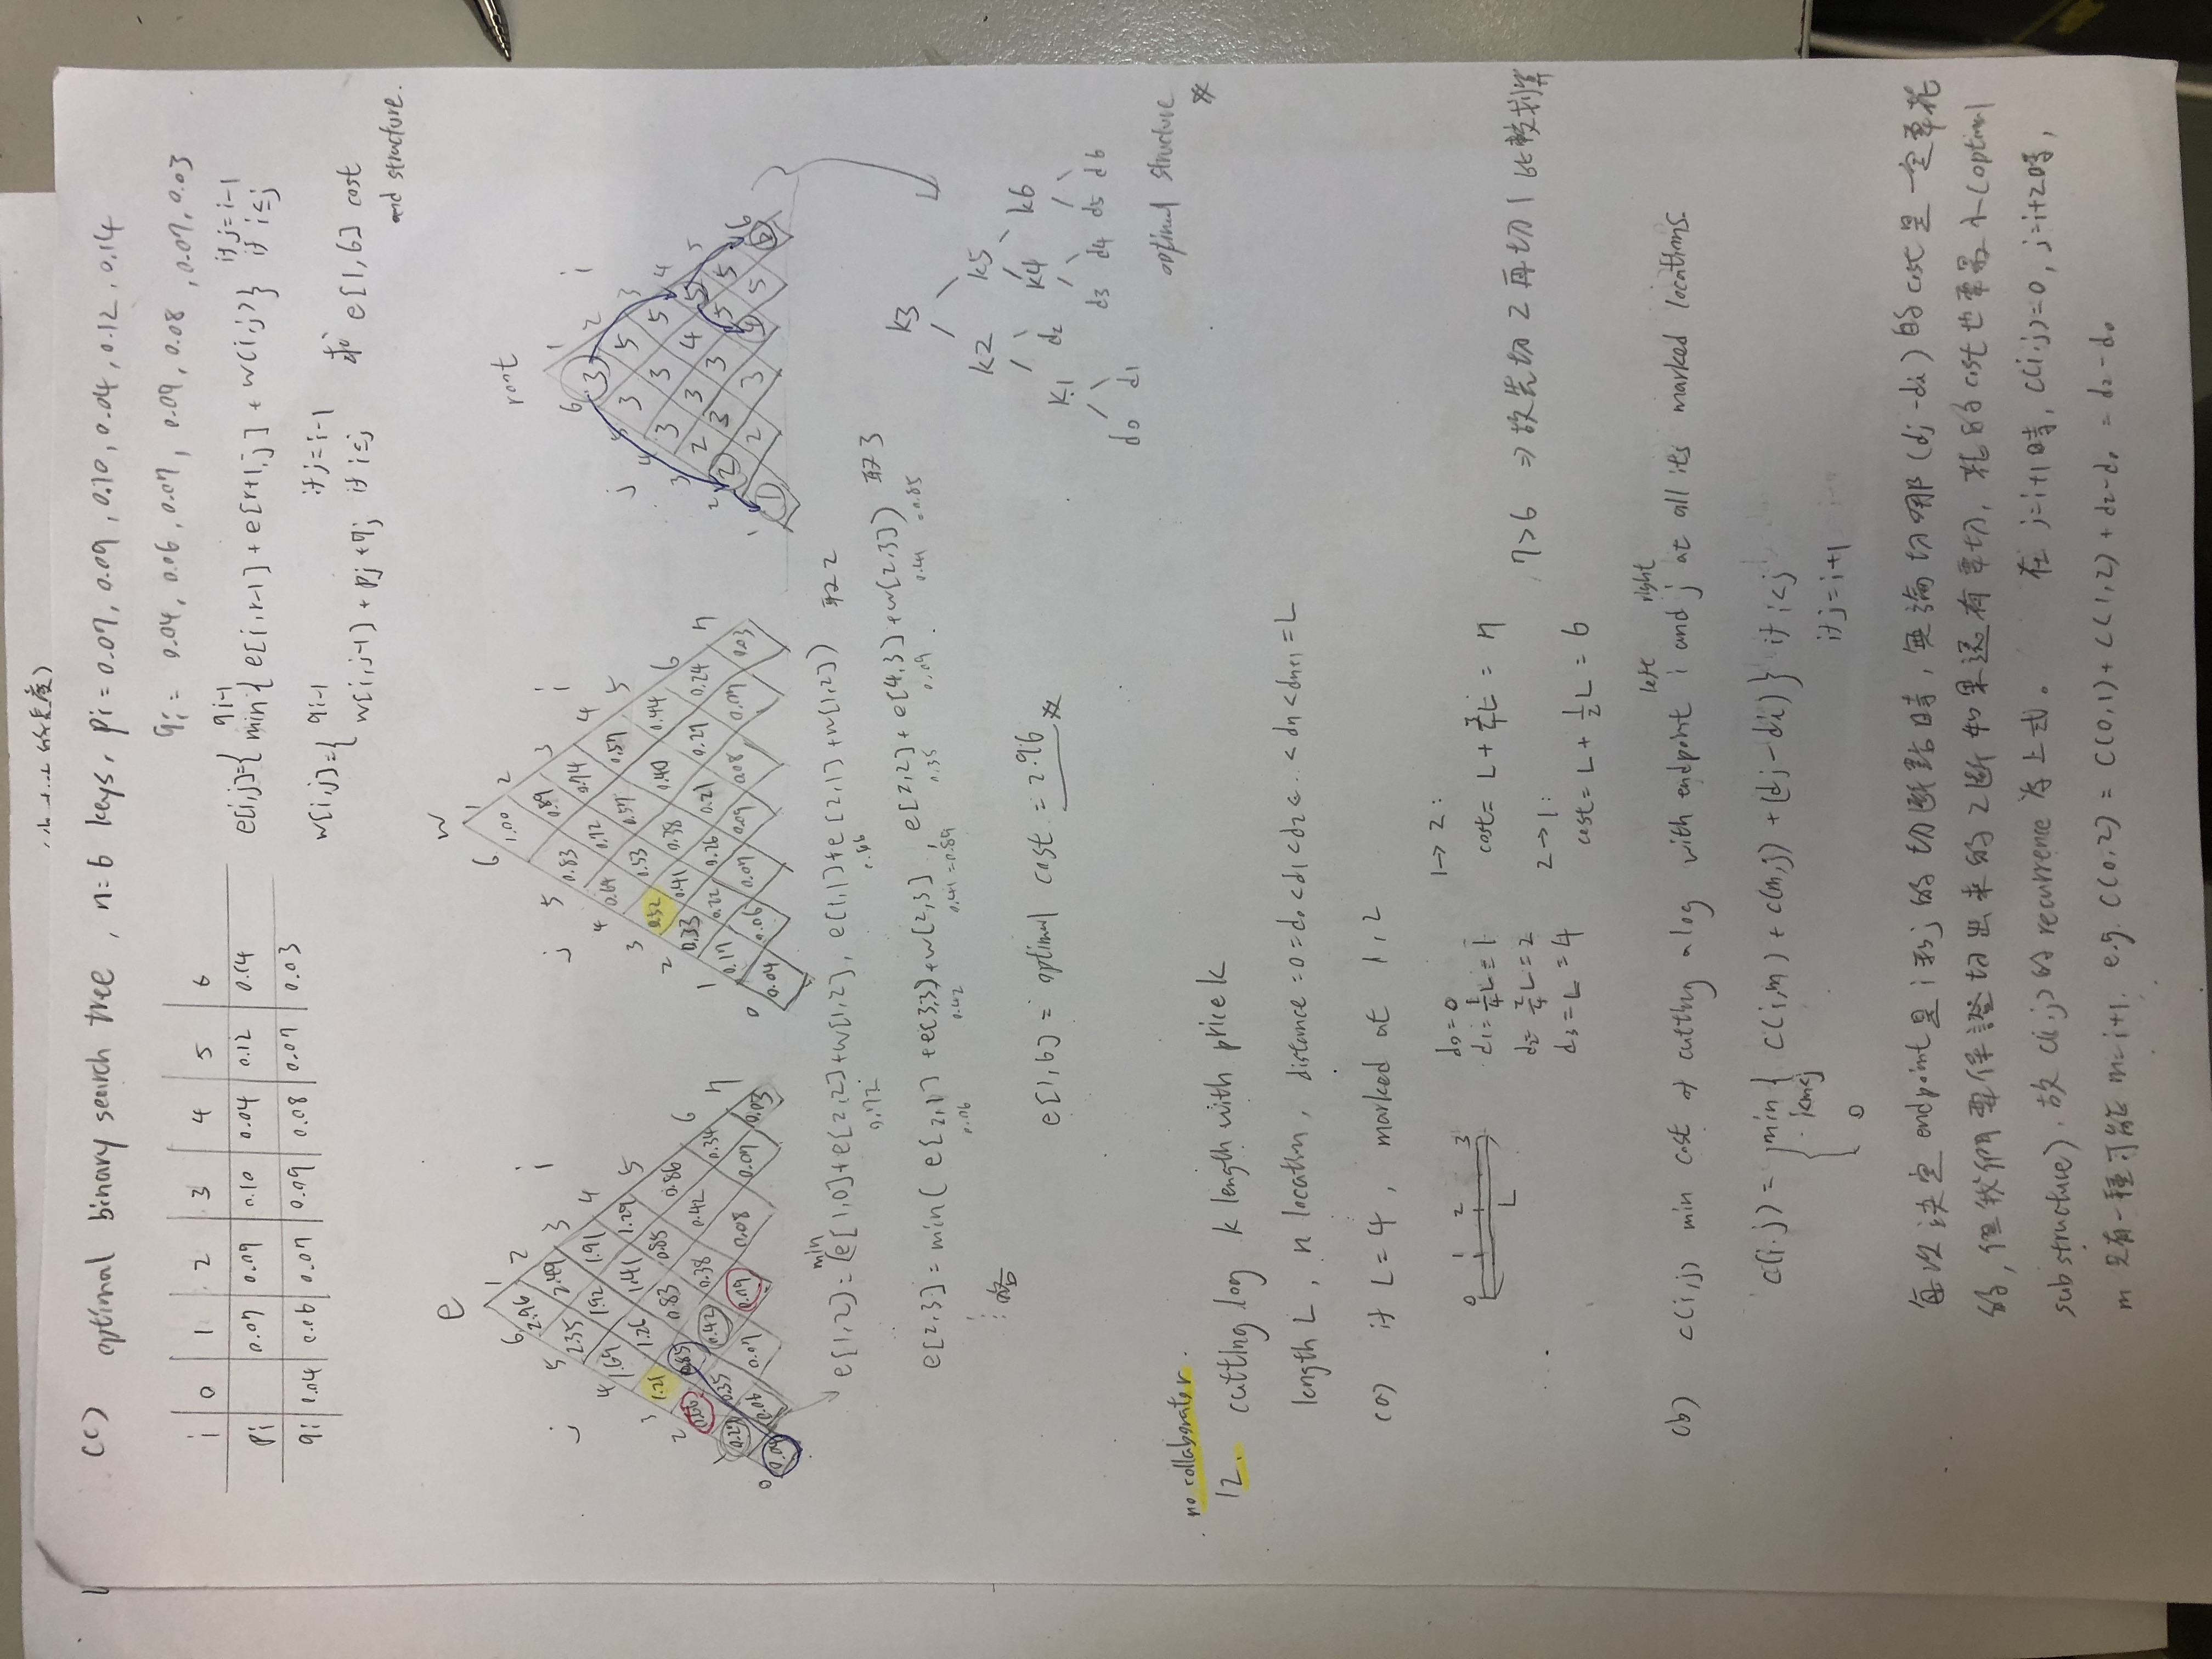 的長度)
(c) optimal binary search tree, n=6 keys, pi = 0.07, 0.09, 0.10, 0.04, 0.12, 0.14
qi = 0.04, 0.06, 0.07, 0.09, 0.08, 0.07, 0.03
i 0 1 2 3 4 5 6
pi 0.07 0.09 0.10 0.04 0.12 0.14
qi 0.04 0.06 0.07 0.09 0.08 0.07 0.03
e[i,j]={ qi-1 if j=i-1
min{ e[i,r-1] + e[r+1,j] + w(i,j)} if i≤j
w[i,j]={ qi-1 if j=i-1
w[i,j-1] + pj + qj if i≤j
求 e[1,6] cost
and structure.
e
6 1
2.96
5 2.35 2.49 2
4 1.69 1.92 1.91 3
3 1.21 1.26 1.41 1.29 4
2 0.66 0.85 0.83 0.85 0.86 5
1 0.27 0.35 0.42 0.38 0.42 0.34 6
0 0.04 0.06 0.07 0.09 0.08 0.07 0.03 7
j i
w
6 1
1.00
5 0.83 0.89 2
4 0.64 0.72 0.74 3
3 0.52 0.53 0.57 0.57 4
2 0.33 0.41 0.38 0.40 0.44 5
1 0.17 0.22 0.26 0.21 0.27 0.24 6
0 0.04 0.06 0.07 0.09 0.08 0.07 0.03 7
j i
root
6 1
3
5 3 5 2
4 3 3 5 3
3 2 3 4 5 4
2 2 3 3 5 5 5
1 1 2 3 4 5 6 6
j i
e[1,2] = min(e[1,0]+e[2,2]+w[1,2], e[1,1]+e[2,1]+w[1,2]) 取2
0.72 0.66
e[2,3] = min( e[2,1] + e[3,3] + w[2,3], e[2,2] + e[4,3] + w[2,3]) 取3
0.06 0.42 0.41 = 0.89 0.35 0.09 0.41 = 0.85
⋮ 略
e[1,6] = optimal cost = 2.96
k3
k2 k5
k1 d2 k4 k6
d0 d1 d3 d4 d5 d6
optimal structure
no collaborator.
12. cutting log k length with price k
length L, n location, distance = 0 = d0 < d1 < d2 < .. < dn < dn+1 = L
(a) if L=4, marked at 1, 2
0 1 2 3
L
d0 = 0
d1 = 1/4 L = 1
d2 = 2/4 L = 2
d3 = L = 4
1→2:
cost = L + 3/4 L = 7
2→1:
cost = L + 1/2 L = 6
7>6 ⇒ 故先切2再切1比較划算
left right
(b) c(i,j) min cost of cutting a log with endpoint i and j at all its marked locations.
c(i.j) = { min{ c(i,m) + c(m,j) + (dj - di)} if i<j
i<m<j
0 if j=i+1
每次決定 endpoint是 i 和 j 的切斷點時, 無論切哪 (dj-di) 的 cost 是一定要花
的, 但我們要保證切出來的2斷如果還有要切, 花的cost也要最小(optimal
substructure). 故 c(i.j) 的 recurrence 為上式。 在 j=i+1時, c(i.j)=0, j=i+2時,
m 只有一種可能 m=i+1. e.g. C(0,2) = C(0,1) + C(1,2) + d2-d0 = d2-d0